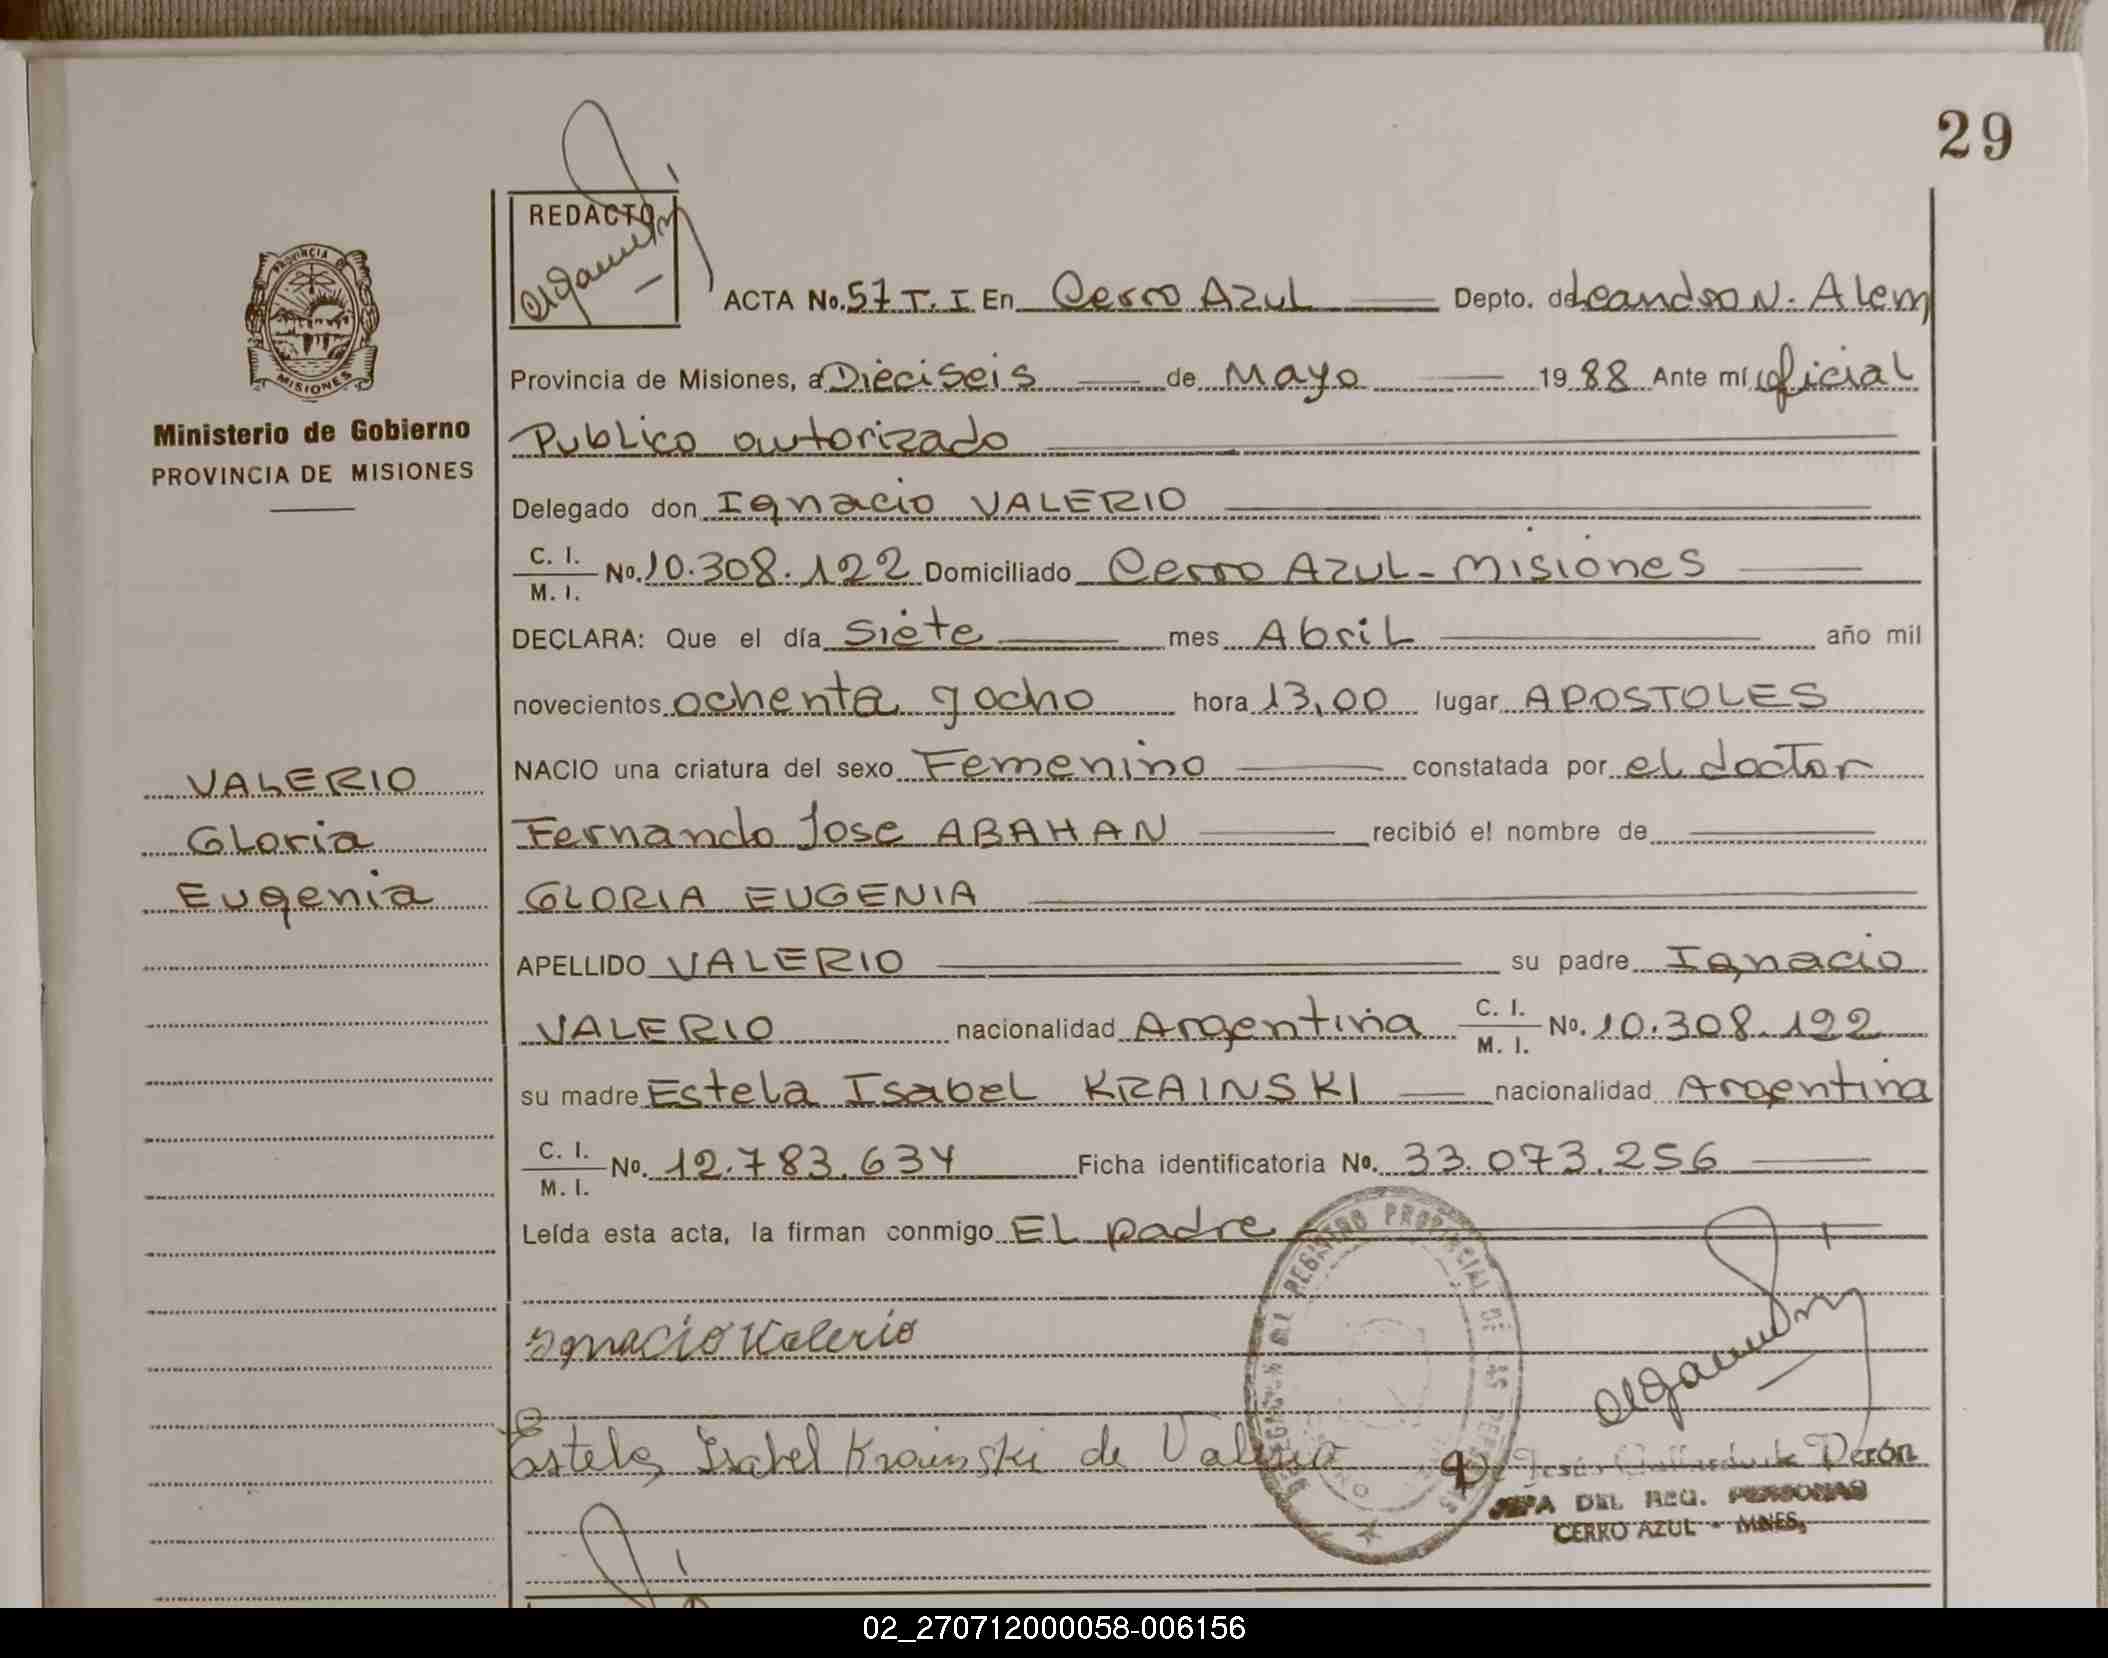 29
REDACTO
PROVINCIA DE
MISIONES
ACTA No. 57 T. I En Cerro Azul Depto. de Leandro N. Alem
Provincia de Misiones, a Dieciseis de Mayo 1988 Ante mí oficial
Ministerio de Gobierno
PROVINCIA DE MISIONES
Publico autorizado
Delegado don Ignacio VALERIO
C. I.
M. I. No. 10.308.122 Domiciliado Cerro Azul - Misiones
DECLARA: Que el día Siete mes Abril año mil
novecientos ochenta y ocho hora 13,00 lugar APOSTOLES
VALERIO
Gloria
Eugenia
NACIO una criatura del sexo Femenino constatada por el doctor
Fernando Jose ABAHAN recibió el nombre de
GLORIA EUGENIA
APELLIDO VALERIO su padre Ignacio
VALERIO nacionalidad Argentina C. I. M. I. No. 10.308.122
su madre Estela Isabel KRAINSKI nacionalidad Argentina
C. I.
M. I. No. 12.783.634 Ficha identificatoria No. 33.073.256
Leída esta acta, la firman conmigo El padre
Ignacio Valerio
Estela Isabel Krainski de Valerio
REGISTRO PROVINCIAL DE LAS PERSONAS
Jesús Perón
JEFA DEL REG. PERSONAS
CERRO AZUL - MNES,
02_270712000058-006156